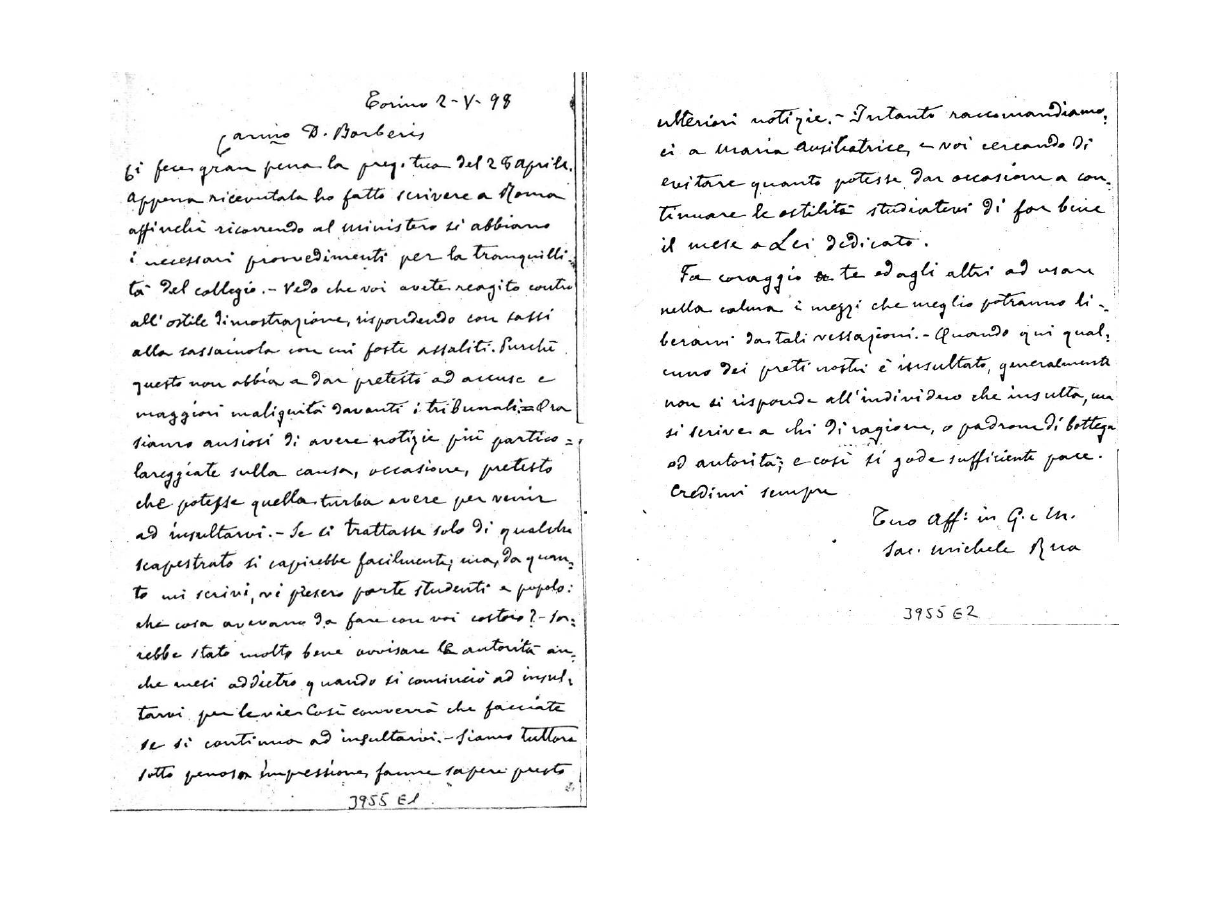 Torino 2-V-98
Carmo D. Barberis
Ci fece gran pena la preg. tua del 28 aprile.
Appena ricevutala ho fatto scrivere a Roma
affinchè ricorrendo al ministero si abbiano
i necessari provvedimenti per la tranquilli-
tà del collegio.- Vedo che voi avete reagito contro
all'ostile dimostrazione, rispondendo con sassi
alla sassaiuola con cui foste assaliti. Purchè
questo non abbia a dar pretesto ad accuse e
maggiori malignità davanti i tribunali.= Ora
siamo ansiosi di avere notizie più partico=
lareggiate sulla causa, occasione, pretesto
che potesse quella turba avere per venir
ad insultarvi.- Se si trattasse solo di qualche
scapestrato si capirebbe facilmente; ma, da quan=
to mi scrivi, vi presero parte studenti e popolo:
che cosa avevano da fare con voi costoro?- Sa=
rebbe stato molto bene avvisare le autorità an=
che mesi addietro quando si cominciò ad insul=
tarvi per le vie. Così converrà che facciate
se si continua ad insultarvi.- Siamo tuttora
sotto penosa impressione, fanne sapere presto
3955 E1
ulteriori notizie.- Intanto raccomandiamo=
ci a Maria Ausiliatrice, e voi cercando di
evitare quanto potesse dar occasione a con=
tinuare le ostilità studiatevi di far bene
il mese a Lei dedicato.
Fa coraggio a te ed agli altri ad usare
nella calma i mezzi che meglio potranno li-
berarvi da tali vessazioni.- Quando qui qual=
cuno dei preti nostri è insultato, generalmente
non si risponde all'individuo che insulta, ma
si scrive a chi di ragione, o padrone di bottega
od autorità; e così si gode sufficiente pace.
Credimi sempre
Tuo Aff: in G. e M.
Sac. Michele Rua
3955 E2